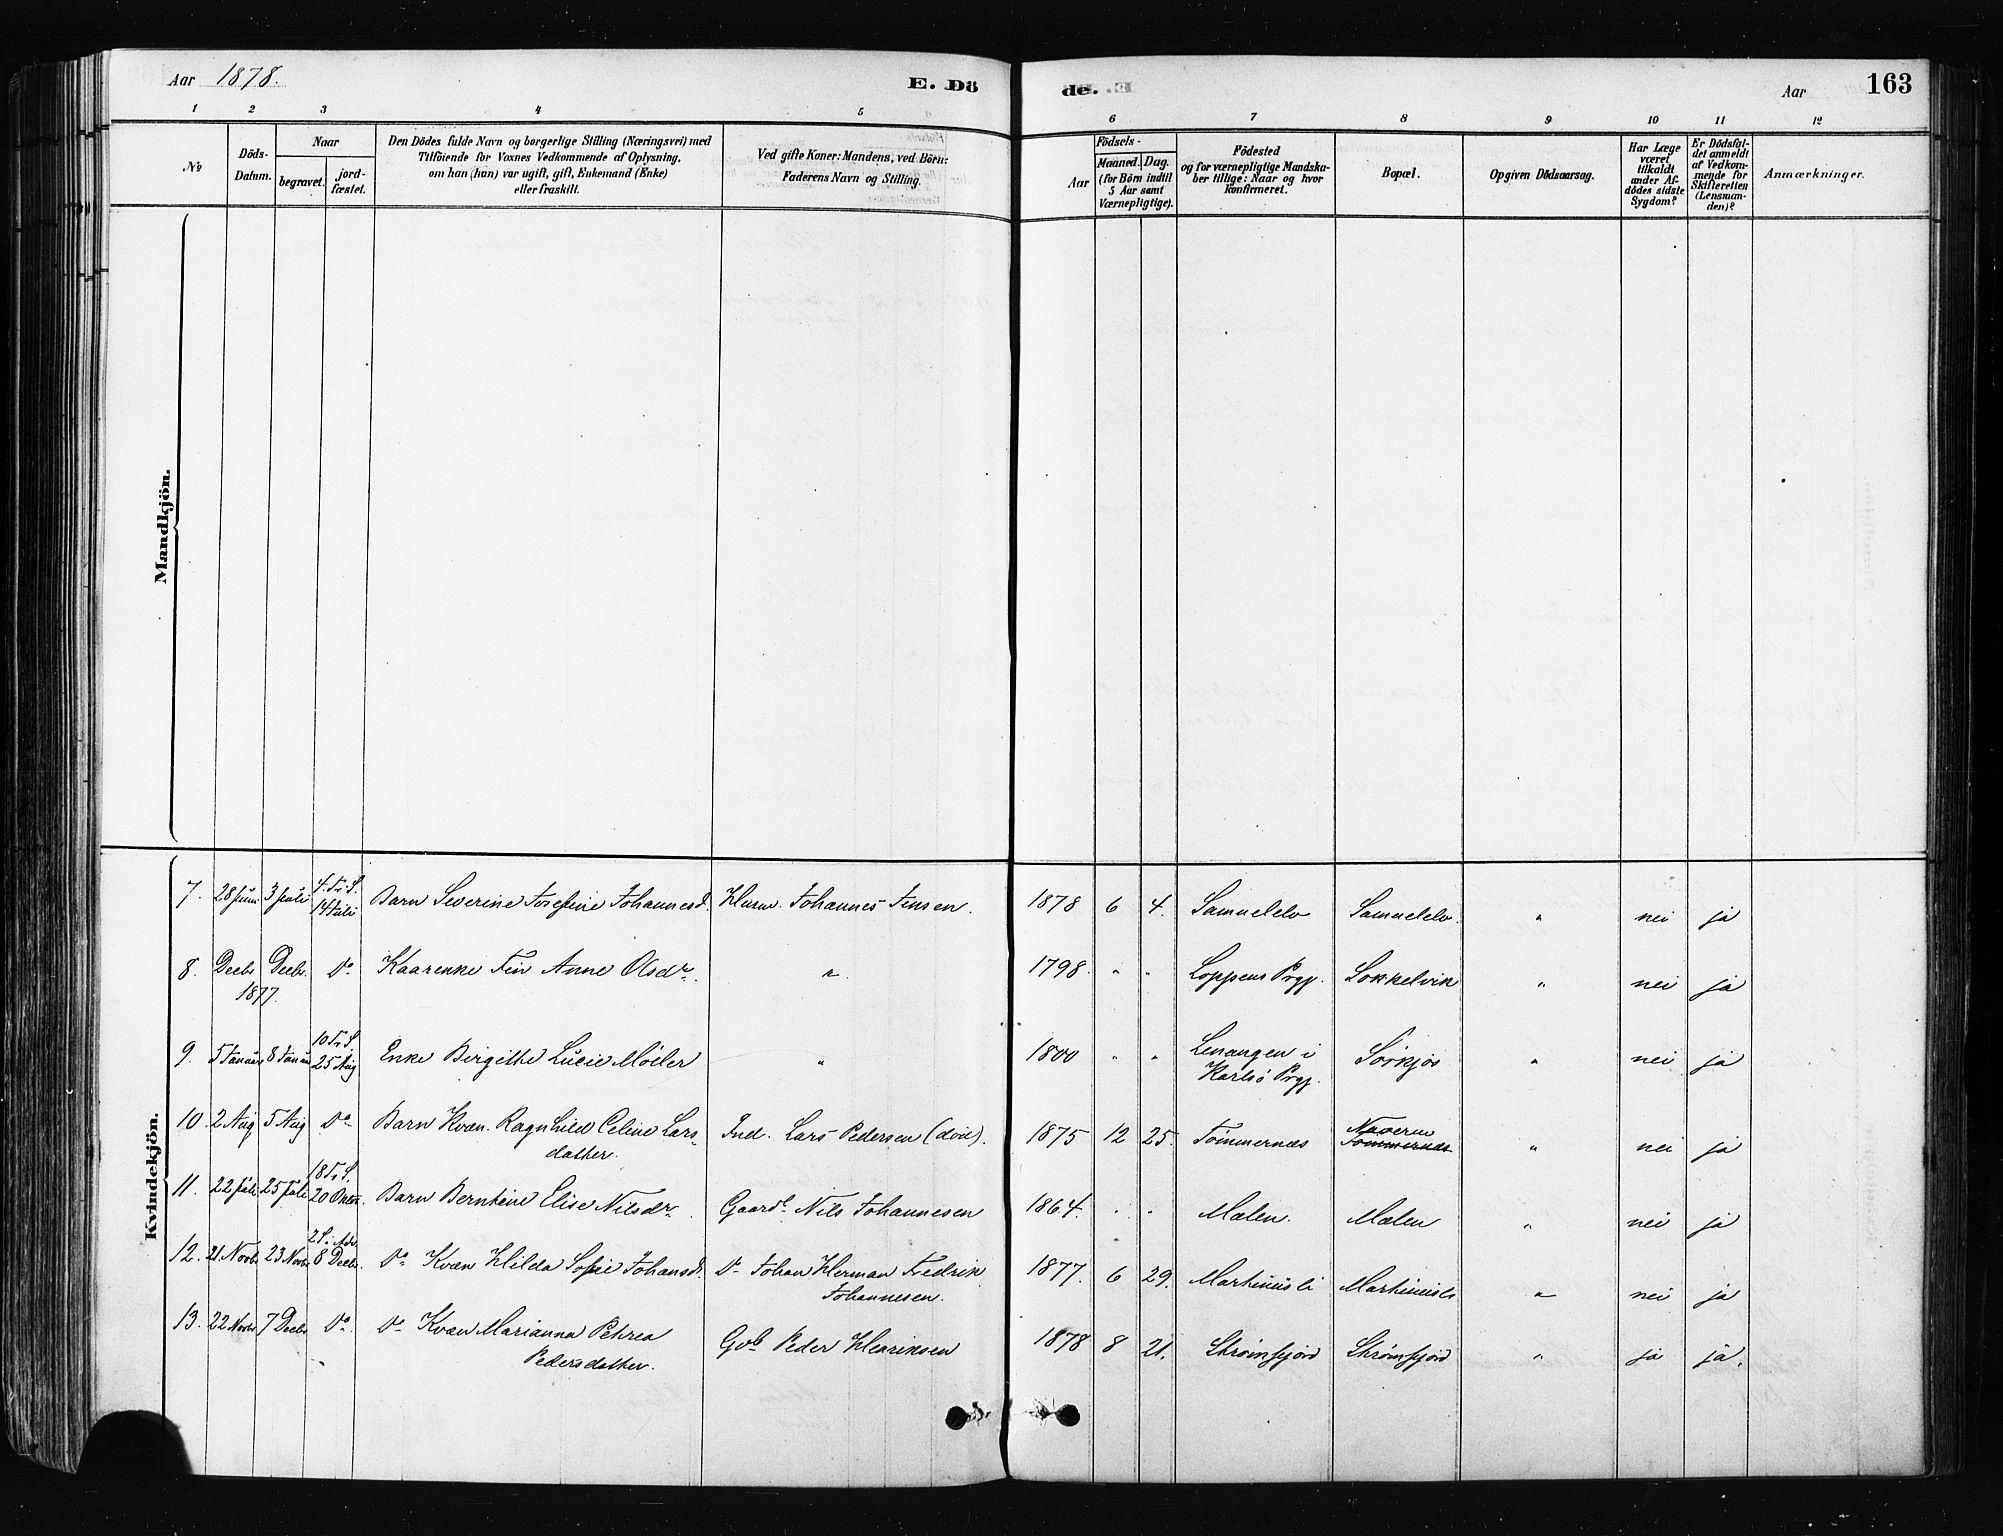 Aar 1878.
E. Dö
de.
Aar
163
1 2 3 4 5 6 7 8 9 10 11 12
№
Döds-
Datum.
Naar
begravet.
jord-
fæstet.
Den Dödes fulde Navn og borgerlige Stilling (Næringsvei) med
Tilföiende for Voxnes Vedkommende af Oplysning,
om han (hun) var ugift, gift, Enkemand (Enke)
eller fraskilt.
Ved gifte Koner: Mandens, ved Börn:
Faderens Navn og Stilling.
Födsels-
Aar
Maaned.
Dag.
(for Börn indtil
5 Aar samt
Værnepligtige).
Födested
og for værnepligtige Mandska-
ber tillige: Naar og hvor
konfirmeret.
Bopæl.
Opgiven Dödsaarsag.
Har Læge
været
tilkaldt
under Af-
dödes sidste
Sygdom?
Er Dödsfal-
det anmeldt
af Vedkom-
mende for
Skifteretten
(Lensman-
den)?
Anmærkninger.
Mandkjön.
Kvindekjön.
7. 28 Juni 3 Juli 4. Tr. S. 14 Juli Barn Severine Josefine Johannesd. Husm. Johannes Jensen. 1878 6 4. Samuelelv Samuelelv. " nei ja
8. Decbr 1877. Decbr. Do Kaarenke Fin Anne Olsdr. " 1798. " " Loppens Prgj. Sokkelvik " nei ja
9. 5 Januar 8 Januar 10 Tr. S. 25 Aug Enke Birgithe Lucie Möller " 1800 " " Lenangen i Karlsö Prgj. Sörkjos " nei ja
10. 2 Aug 5 Aug Do Barn Kvæn. Ragnhild Celine Lars-
datter. Ind. Lars Pedersen (död). 1875 12 25. Tömmernæs Naveren Tömmernæs " nei ja
11. 22 Juli 25 Juli 18 Tr. S. 20 Oktbr Barn Berntine Elise Nilsdr. Gaardb. Nils Johannesen 1864. " " Mælen. Mælen " nei ja
12. 21 Novbr 23 Novbr 2 S. i Adv. 8 Decbr. Do Kvæn Hilda Sofie Johansd. Do Johan Herman Fredrik
Johannesen. 1877. 6 29. Martinusli Martinusli " nei ja
13. 22 Novbr 7 Decbr Do. Do Kvæn Marianna Petrea
Pedersdatter. Gvb Peder Henriksen 1878 8 21. Strömfjord Strömfjord " ja ja.